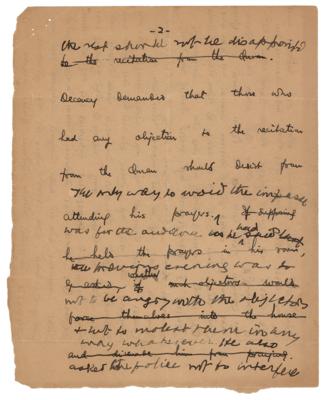 - 2 -
the rest should not be disappointed
to the recitation from the Quran.
Decency demanded that those who
had any objection to the recitation
from the Quran should desist from
The only way to avoid the impasse
attending his prayers. If supposing
was for the audience as he had said
he held the prayers in his room,
the previous evening was to
whether such objectors would
not to be angry with the objectors
force themselves into the house
& not to molest them in any
way whatsoever. He also
and dissuade him from praying.
asked the police not to interfere